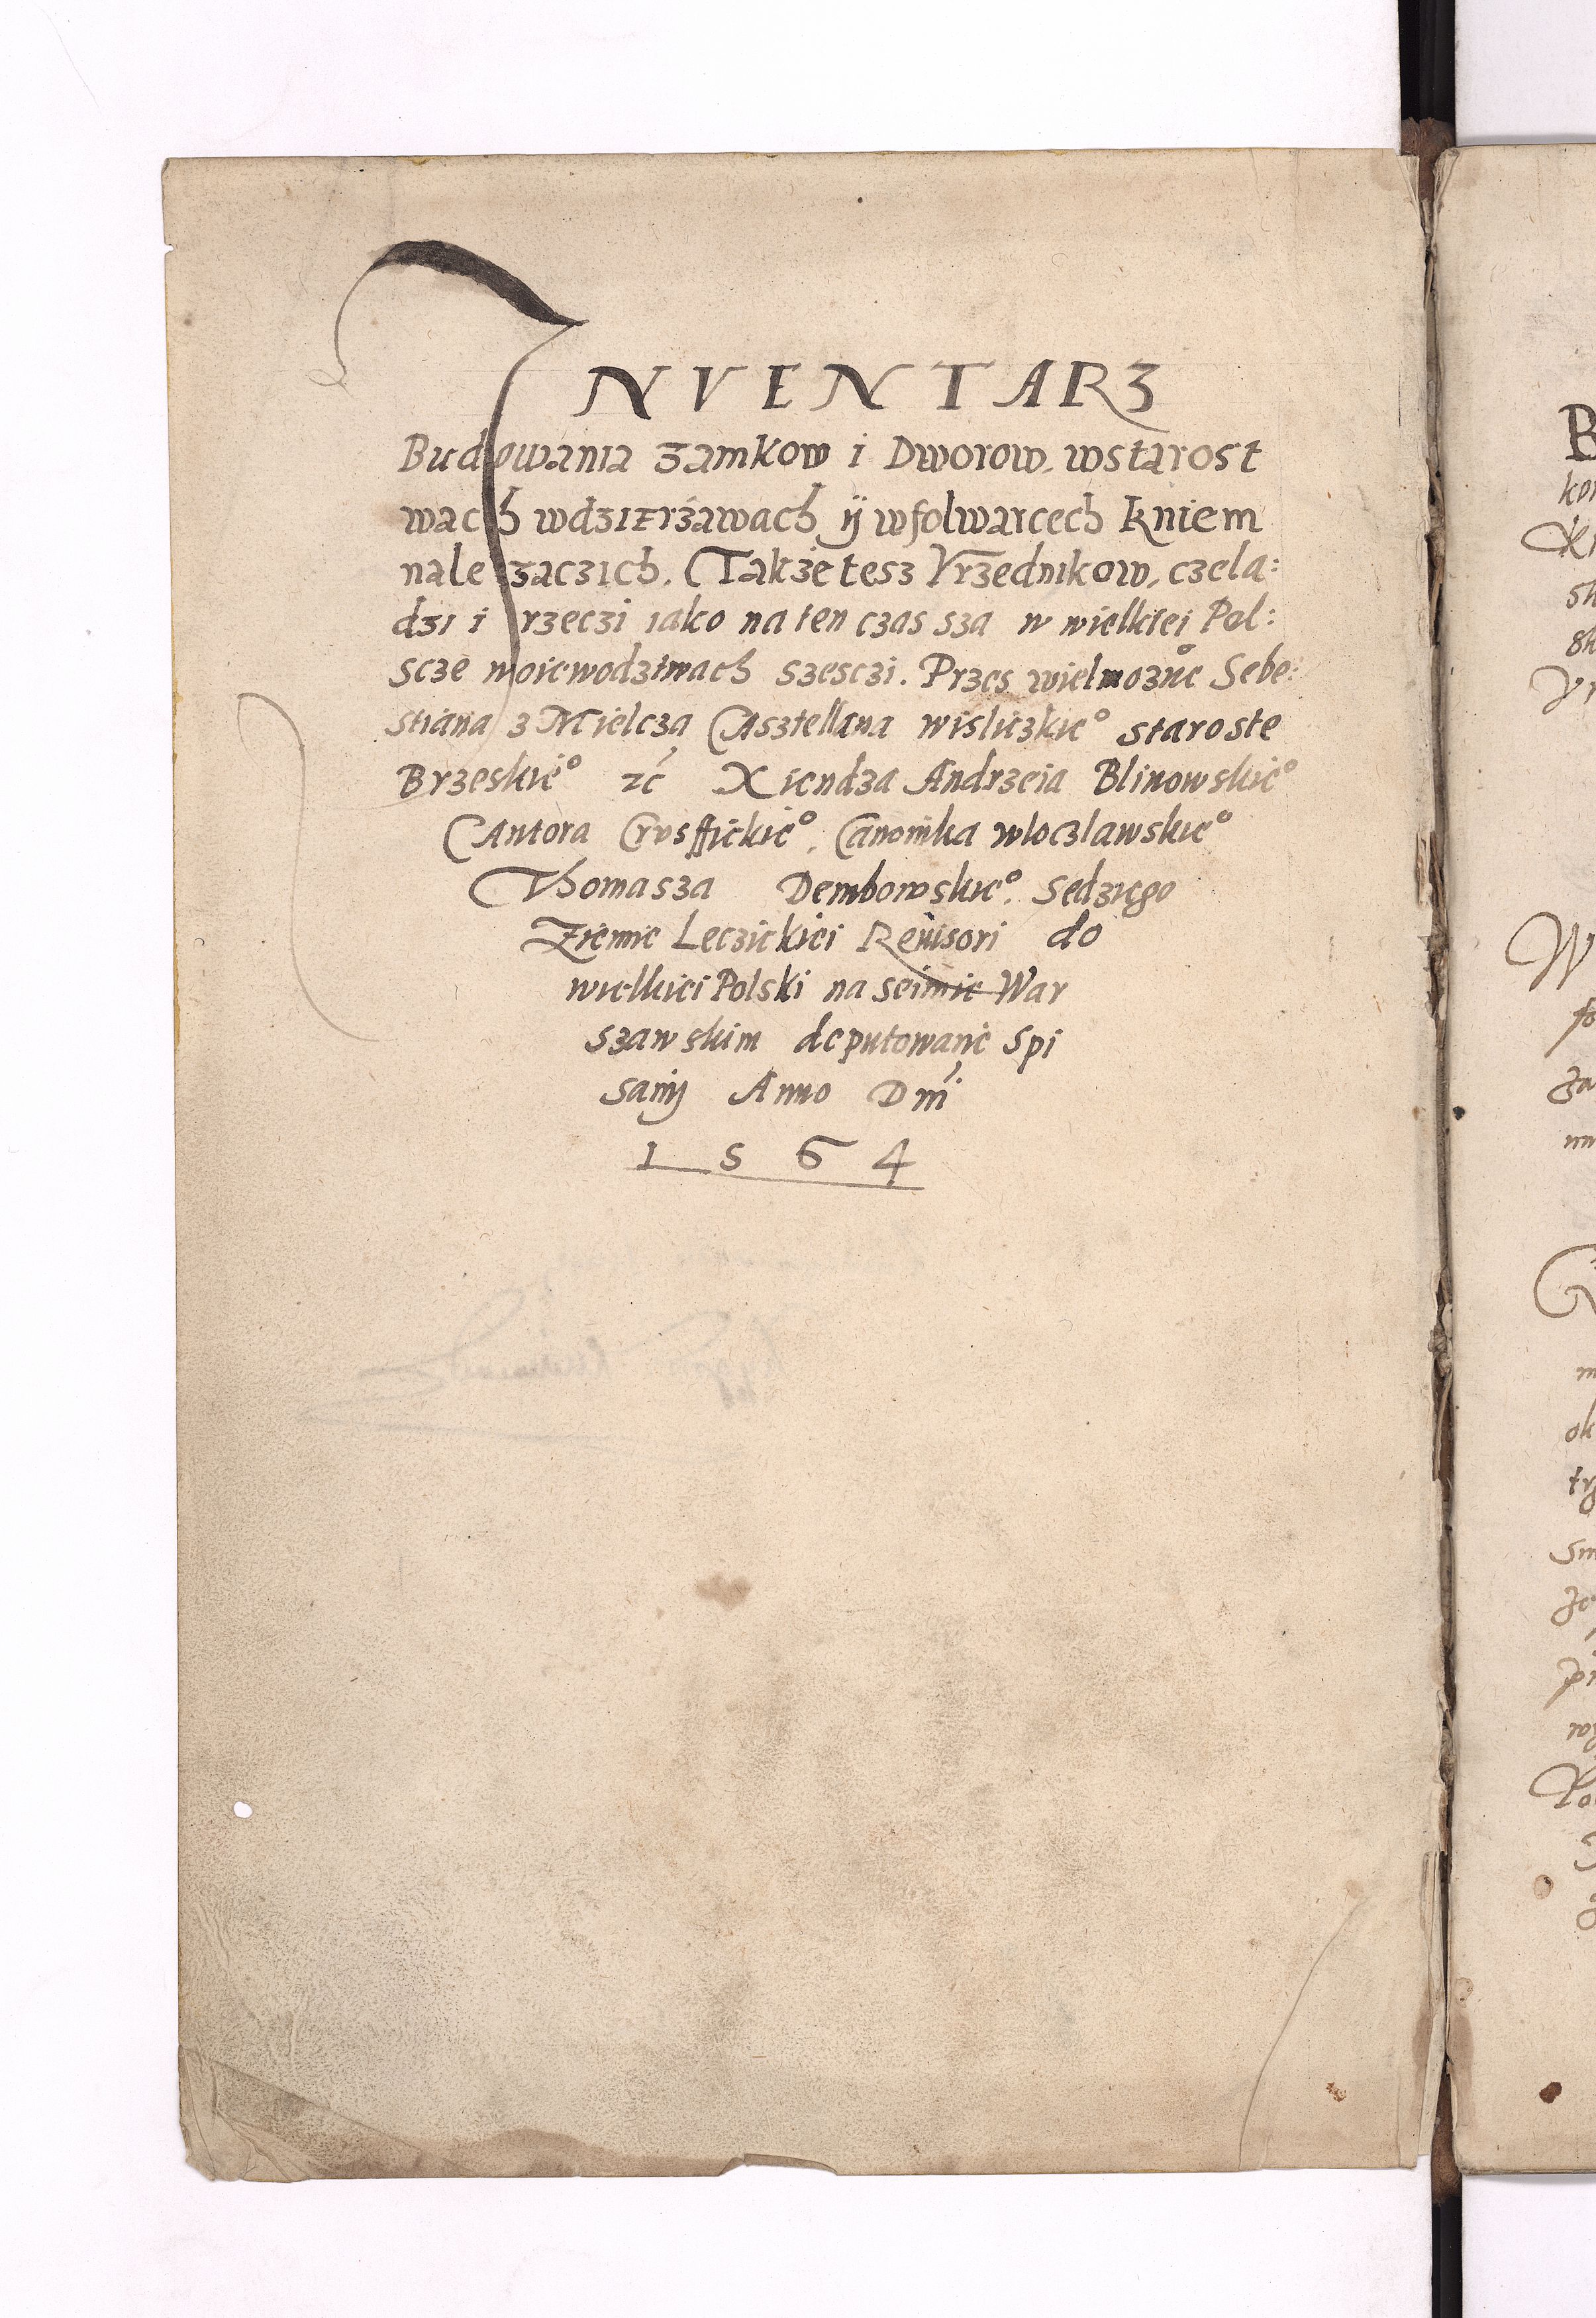 INVENTARZ
Budowania zamkow i Dworow, wstarost
wach wdzierżawach ÿ wfolwarcech kniem
nalezaczich. Takżetesz Vrzednikow, czela:
dzi i rzeczi iako na ten czas sza w wielkiei Pol:
scze woiewodztwach szesczi. Przes wielmozne° Sebe:
stiana z Mielcza Casztellana wisliczkie° staroste
Brzeskie° zć Xiendza Andrzeia Blinowskie°
Cantora Crusffickie°, Canonika wloczlawskie°
Thomasza Dembowskie°. Sedziego
Ziemie Leczickiei Rewisori do
wielkiei Polski na seimie War
szawskim deputowane spi
sanÿ Anno Dni
1564